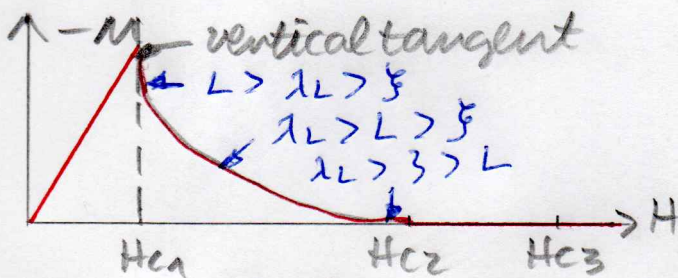 -M vertical tangent
L > λL > ξ
λL > L > ξ
λL > ξ > L
H
Hc1 Hc2 Hc3